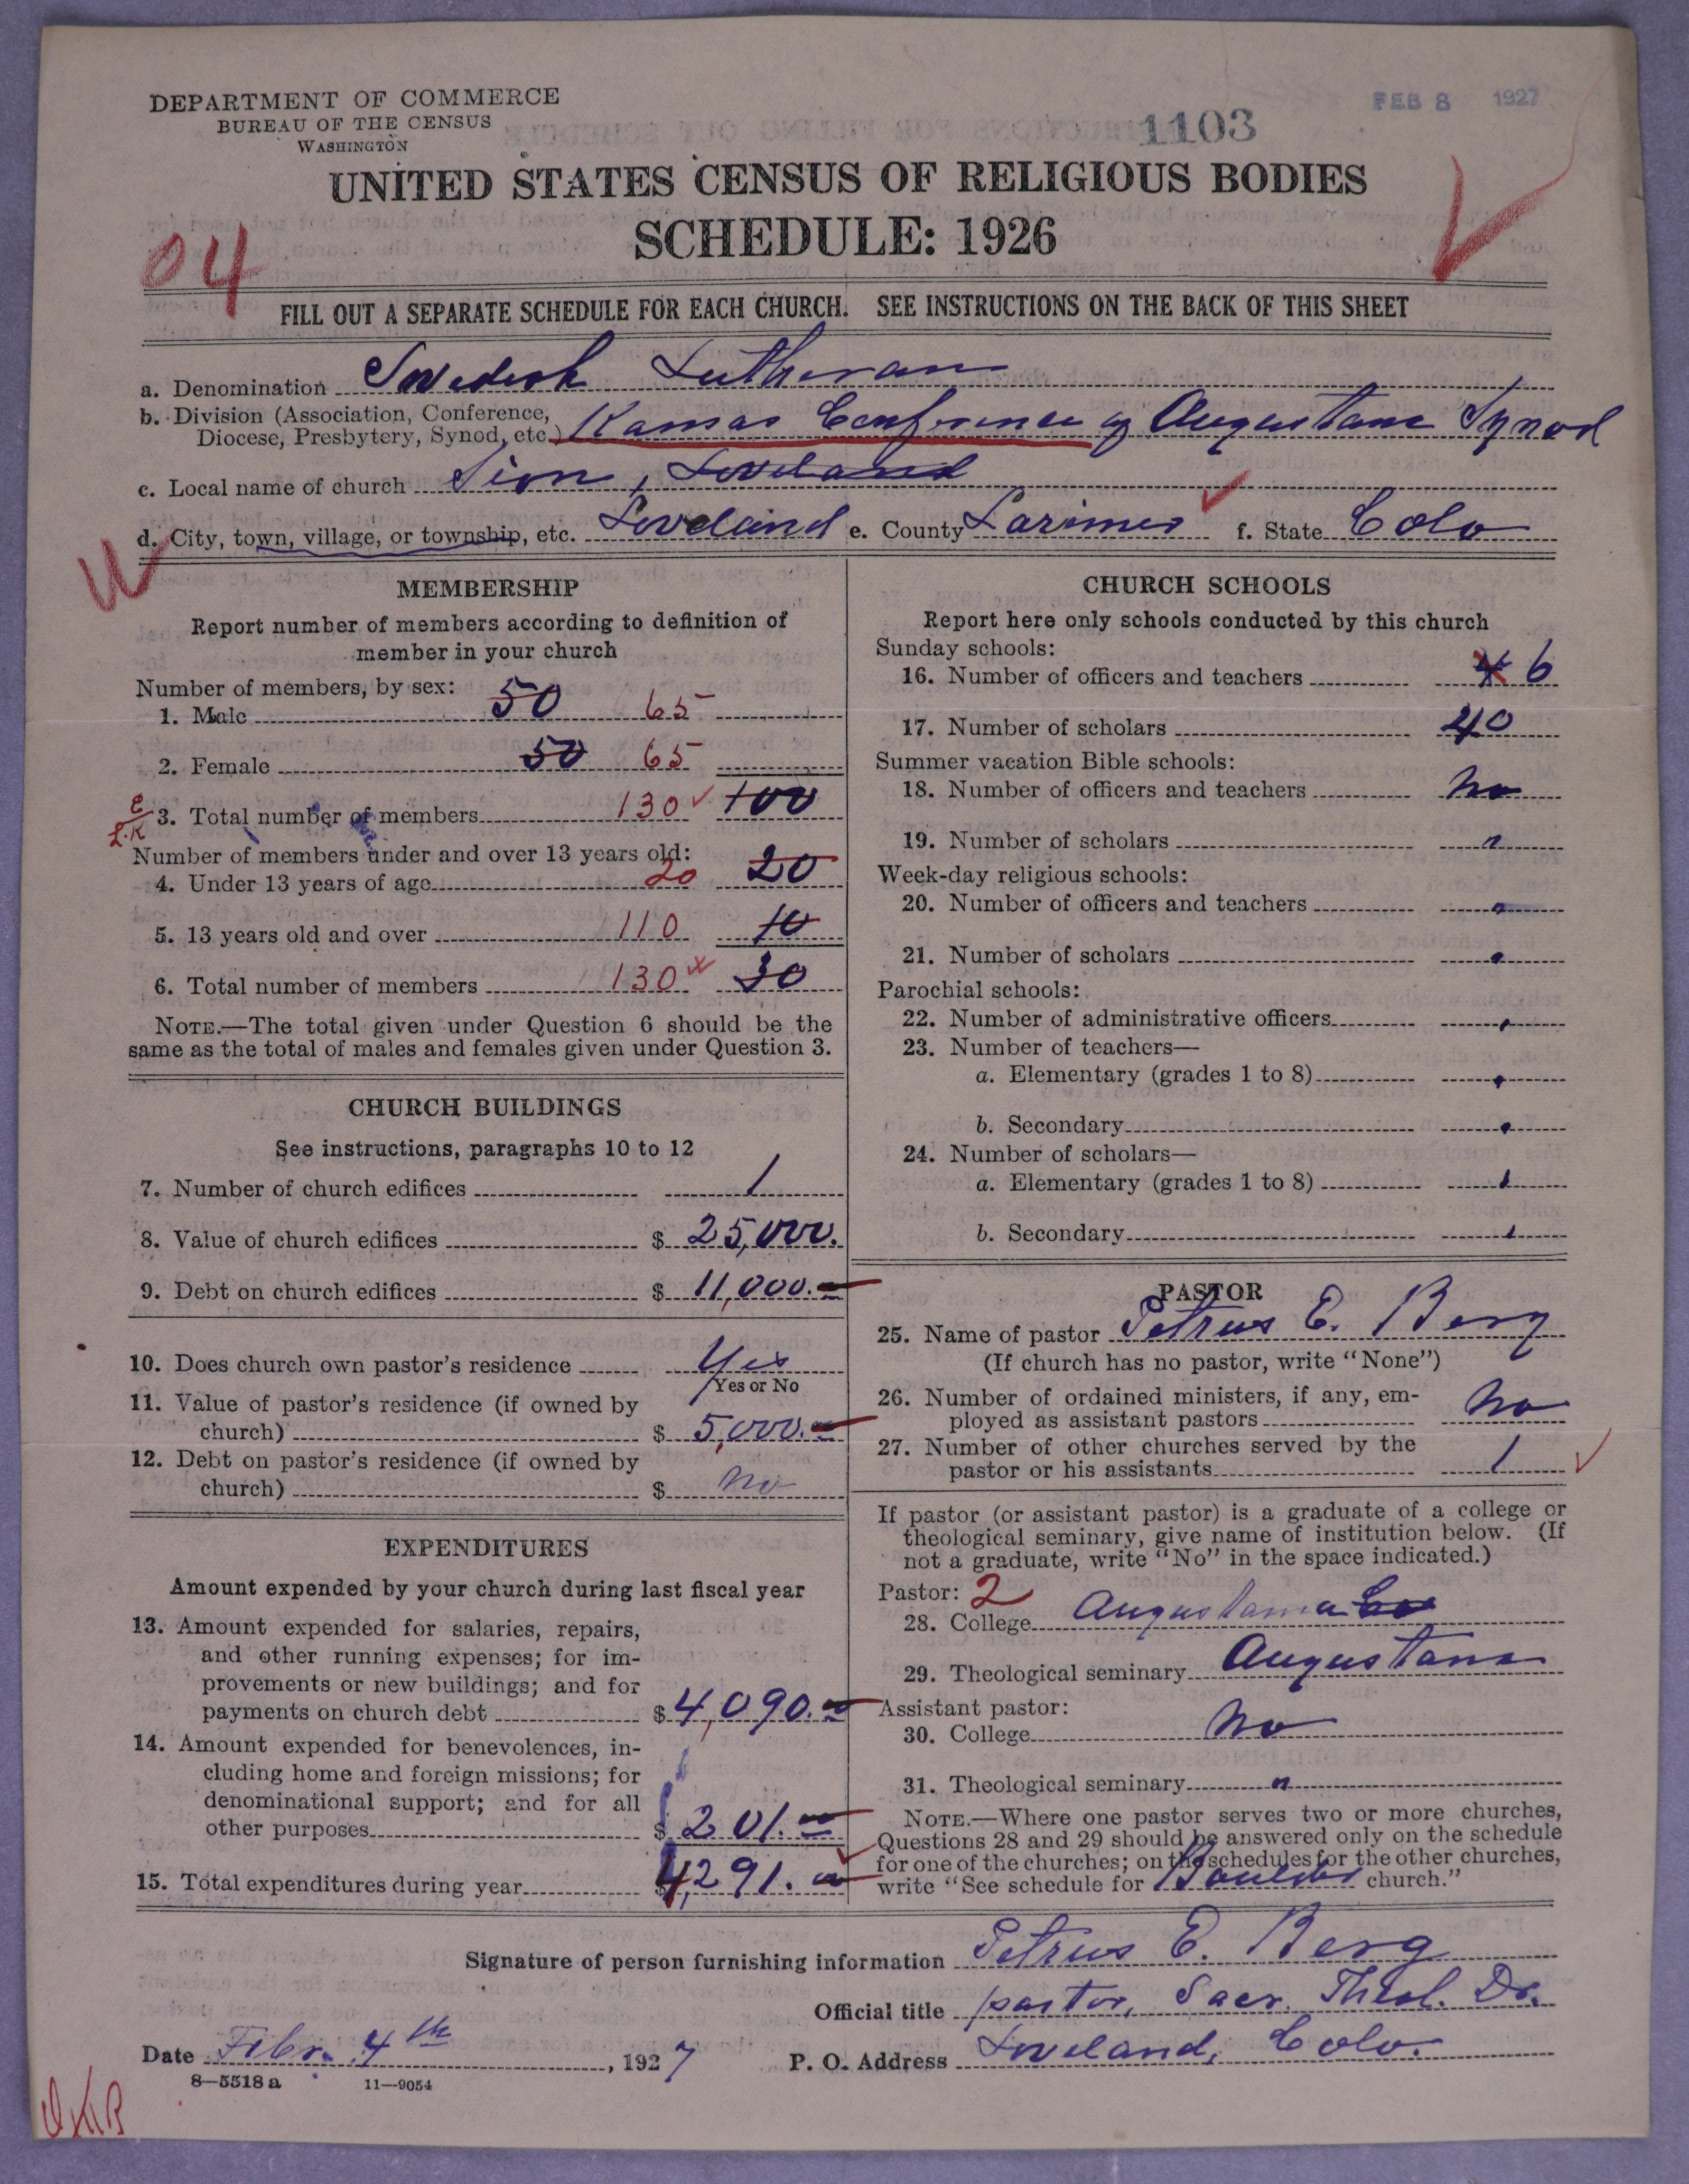 DEPARTMENT OF COMMERCE
BUREAU OF THE CENSUS
WASHINGTON
1103
FEB 8 1927
UNITED STATES CENSUS OF RELIGIOUS BODIES
SCHEDULE: 1926
04
FILL OUT A SEPARATE SCHEDULE FOR EACH CHURCH. SEE INSTRUCTIONS ON THE BACK OF THIS SHEET
a. Denomination Swedish Lutheran
b. Division (Association, Conference, Diocese, Presbytery, Synod, etc.) Kansas Conference of Augustana Synod
c. Local name of church Sion, Loveland
d. City, town, village, or township, etc. Loveland e. County Larimer f. State Colo
MEMBERSHIP
Report number of members according to definition of
member in your church
Number of members, by sex:
1. Male 50 65
2. Female 50 65
3. Total number of members 130 100
Number of members under and over 13 years old:
4. Under 13 years of age 20 20
5. 13 years old and over 110 10
6. Total number of members 130 30
NOTE.—The total given under Question 6 should be the
same as the total of males and females given under Question 3.
CHURCH BUILDINGS
See instructions, paragraphs 10 to 12
7. Number of church edifices 1
8. Value of church edifices $ 25,000.
9. Debt on church edifices $ 11,000.—
10. Does church own pastor's residence Yes
Yes or No
11. Value of pastor's residence (if owned by
church) $ 5,000.—
12. Debt on pastor's residence (if owned by
church) $ No
EXPENDITURES
Amount expended by your church during last fiscal year
13. Amount expended for salaries, repairs,
and other running expenses; for im-
provements or new buildings; and for
payments on church debt $ 4,090.—
14. Amount expended for benevolences, in-
cluding home and foreign missions; for
denominational support; and for all
other purposes $ 201.—
15. Total expenditures during year $ 4,291.—
CHURCH SCHOOLS
Report here only schools conducted by this church
Sunday schools:
16. Number of officers and teachers 6
17. Number of scholars 40
Summer vacation Bible schools:
18. Number of officers and teachers No
19. Number of scholars "
Week-day religious schools:
20. Number of officers and teachers "
21. Number of scholars "
Parochial schools:
22. Number of administrative officers "
23. Number of teachers—
a. Elementary (grades 1 to 8) "
b. Secondary "
24. Number of scholars—
a. Elementary (grades 1 to 8) "
b. Secondary "
PASTOR
25. Name of pastor Petrus E. Berg
(If church has no pastor, write "None")
26. Number of ordained ministers, if any, em-
ployed as assistant pastors No
27. Number of other churches served by the
pastor or his assistants 1
If pastor (or assistant pastor) is a graduate of a college or
theological seminary, give name of institution below. (If
not a graduate, write "No" in the space indicated.)
Pastor: 2
28. College Augustana Co
29. Theological seminary Augustana
Assistant pastor:
30. College No
31. Theological seminary "
NOTE.—Where one pastor serves two or more churches,
Questions 28 and 29 should be answered only on the schedule
for one of the churches; on the schedules for the other churches,
write "See schedule for Boulder church."
Signature of person furnishing information Petrus E. Berg
Official title pastor, Sacr. Theol. Dr.
Date Febr. 4th, 1927 P. O. Address Loveland, Colo.
8—5518a 11—9054